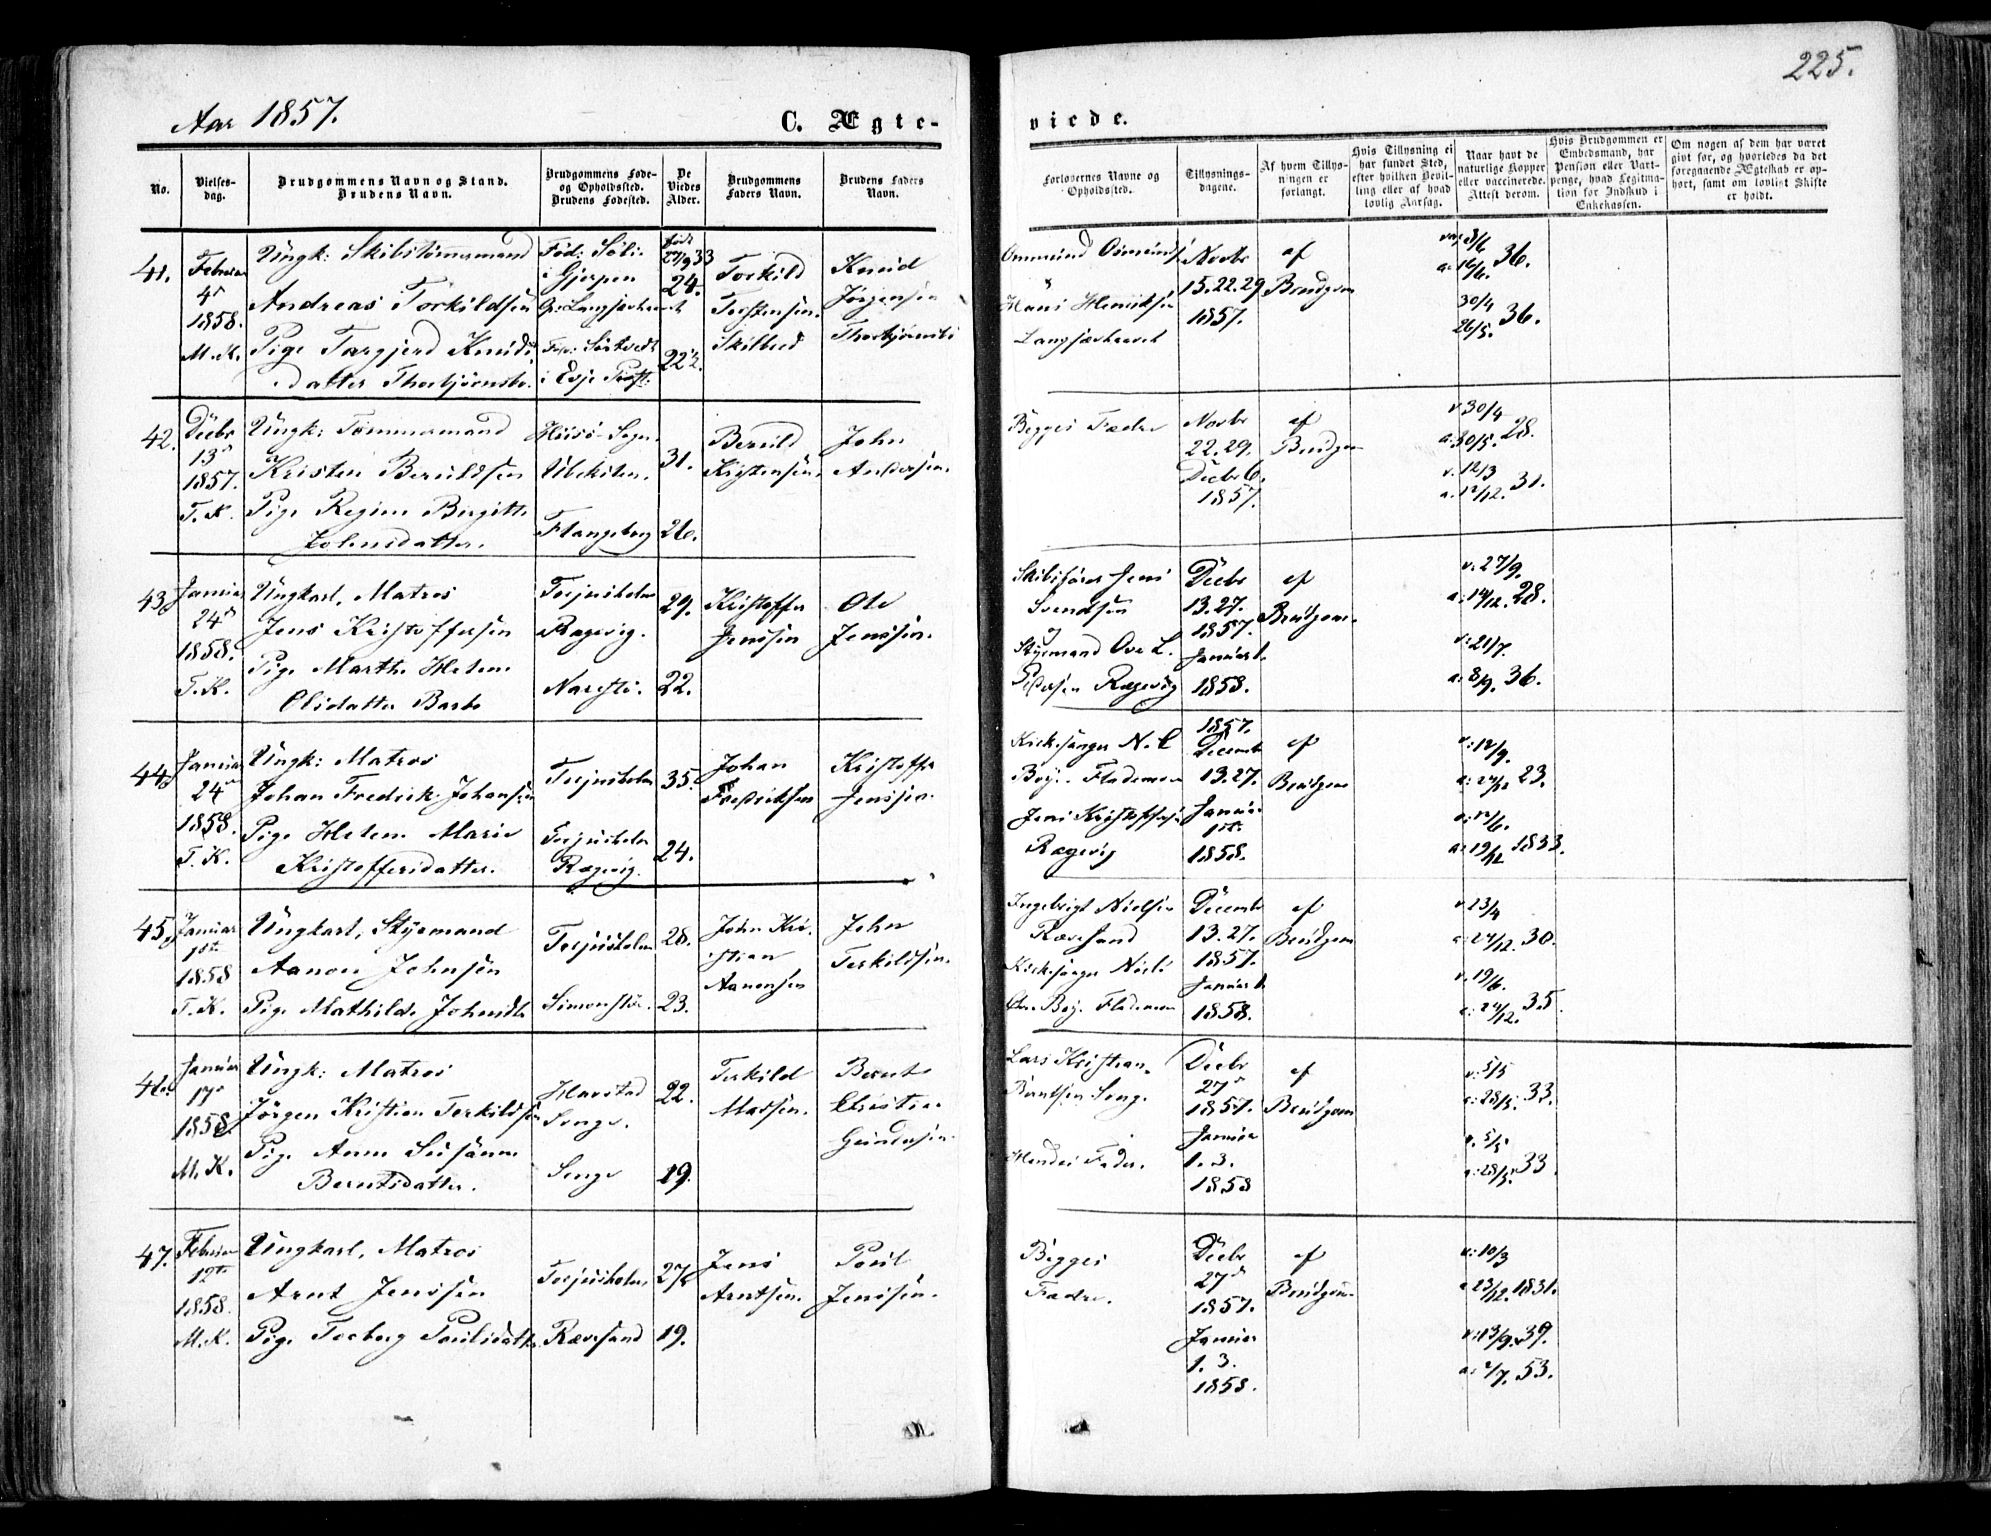 225.
Aar 1857.
C. Ægte-
viede.
No.
Vielses-
dag.
Brudgommens Navn og Stand.
Brudens Navn.
Brudgommens Føde-
og Opholdssted.
Brudens Fødested.
De
Viedes
Alder.
Brudgommens
Faders Navn.
Brudens Faders
Navn.
Forlovernes Navne og
Opholdssted.
Tillysnings-
dagene.
Af hvem Tillys-
ningen er
forlangt.
Hvis Tillysning ei
har fundet Sted,
efter hvilken Bevil-
ling eller af hvad
lovlig Aarsag.
Naar havt de
naturlige Kopper
eller vaccinerede.
Attest derom.
Hvis Brudgommen er
Embedsmand, har
Pension eller Vart-
penge, hvad Legitima-
tion for Indskud i
Enkekassen.
Om nogen af dem har været
gift før, og hvorledes da det
foregaaende Ægteskab er op-
hørt, samt om lovligt Skifte
er holdt.
41.
Februar
4de
1858.
M. K.
Ungk: Skibstømmermand
Andreas Torkildsen
Pige Targjerd Knuds
datter Thorbjørnsb.
Fød:
i Gjerpen
i Evje Præst.
født
27/9 33
24.
22½.
Torkild
Terkensen
Knud
Jørgensen
Hans Henriksen
Novbr
15.22.29
1857.
af
Brudgom
36.
30/4
26/5. 36.
42.
Decbr
13de
1857.
T. K.
Ungk: Tømmermand
Kristen Beruldsen
Pige Regine Bergitte
Johnsdatter.
Hisø Sogn
Ubekiten.
Flangeborg
31.
26.
Beruld
Kristensen.
John
Andersen.
Begges Fædre
Novbr
22.29.
Decbr 6.
1857.
af
Brudgom
v. 30/4
a. 30/5. 28.
v. 12/3
a. 12/12. 31.
43.
Januar
24de
1858.
T. K.
Ungkarl, Matros
Jens Kristoffersen
Pige Marthe Helene
Olsdatter Barbo
Terjusholm
Ragevig.
Narestø.
29.
22.
Kristoffer
Jenssen
Ole
Jenssen.
Skibsfører Jens
Svendsen
og
Styrmand Ove L.
Ragevig
Decbr
13.27.
1857.
Januar 1.
1858.
af
Brudgom.
v. 27/9.
a. 14/12. 28.
v. 21/7.
a. 8/9. 36.
44.
Januar
24de
1858.
T. K.
Ungk: Matros
Johan Fredrik Johansen
Pige Helene Marie
Kristoffersdatter.
Terjusholm
Terjusholm
Ragevig.
35.
24.
Johan
Fredriksen
Kristoffer
Jenssen.
Kirkesanger N. C
Boye Fladmoen
Jens Kristoffersen
Ragevig
1857.
Decembr
13.27.
Januar
1ste
1858.
af
Brudgom
v: 12/9.
a: 24/12 23.
a: 19/12 1833.
45.
Januar
1ste
1858
T. K.
Ungkarl, Styrmand
Aanon Johnsen
Pige Mathilde Johnsdtr
Terjusholm
Simonstø.
28.
23.
John Kri-
stian
Aanonsen
John
Terkildsen.
Ingebrigt Nielsen
Rævesand
Kirkesanger Niels
Chr. Boye Fladmoen
Decembr
13.27.
1857.
Januar 1.
1858.
af
Brudgom
v. 23/4
a. 24/12. 30.
v. 19/6.
a: 24/12. 35.
46.
Januar
17de
1858.
M. K.
Ungk: Matros
Jørgen Kristian Terkildsen
Pige Anne Susanne
Berntsdatter.
Harstad
Songe.
Songe
22.
19.
Terkild
Madsen.
Bernt
Christian
Gundersen.
Lars Kristian
Berntsen Songe
Mandes Fader.
Decbr
27de
1857.
Januar
1. 3.
1858
af
Brudgom
v: 5/5
a: 28/5. 33.
v. 5/5
a: 28/5. 33.
47.
Februar
12te
1858.
M. K.
Ungkarl, Matros
Arnt Jenssen
Pige Torborg Poulsdatter
Terjusholm
Rævesand
27½
19.
Jens
Arntsen.
Poul
Jenssen.
Begges
Fædre.
Decbr
27de
1857.
Januar
1. 3.
1858.
af
Brudgom
v: 10/3
a 23/12. 1831.
v: 13/9. 39.
a: 2/7. 53.